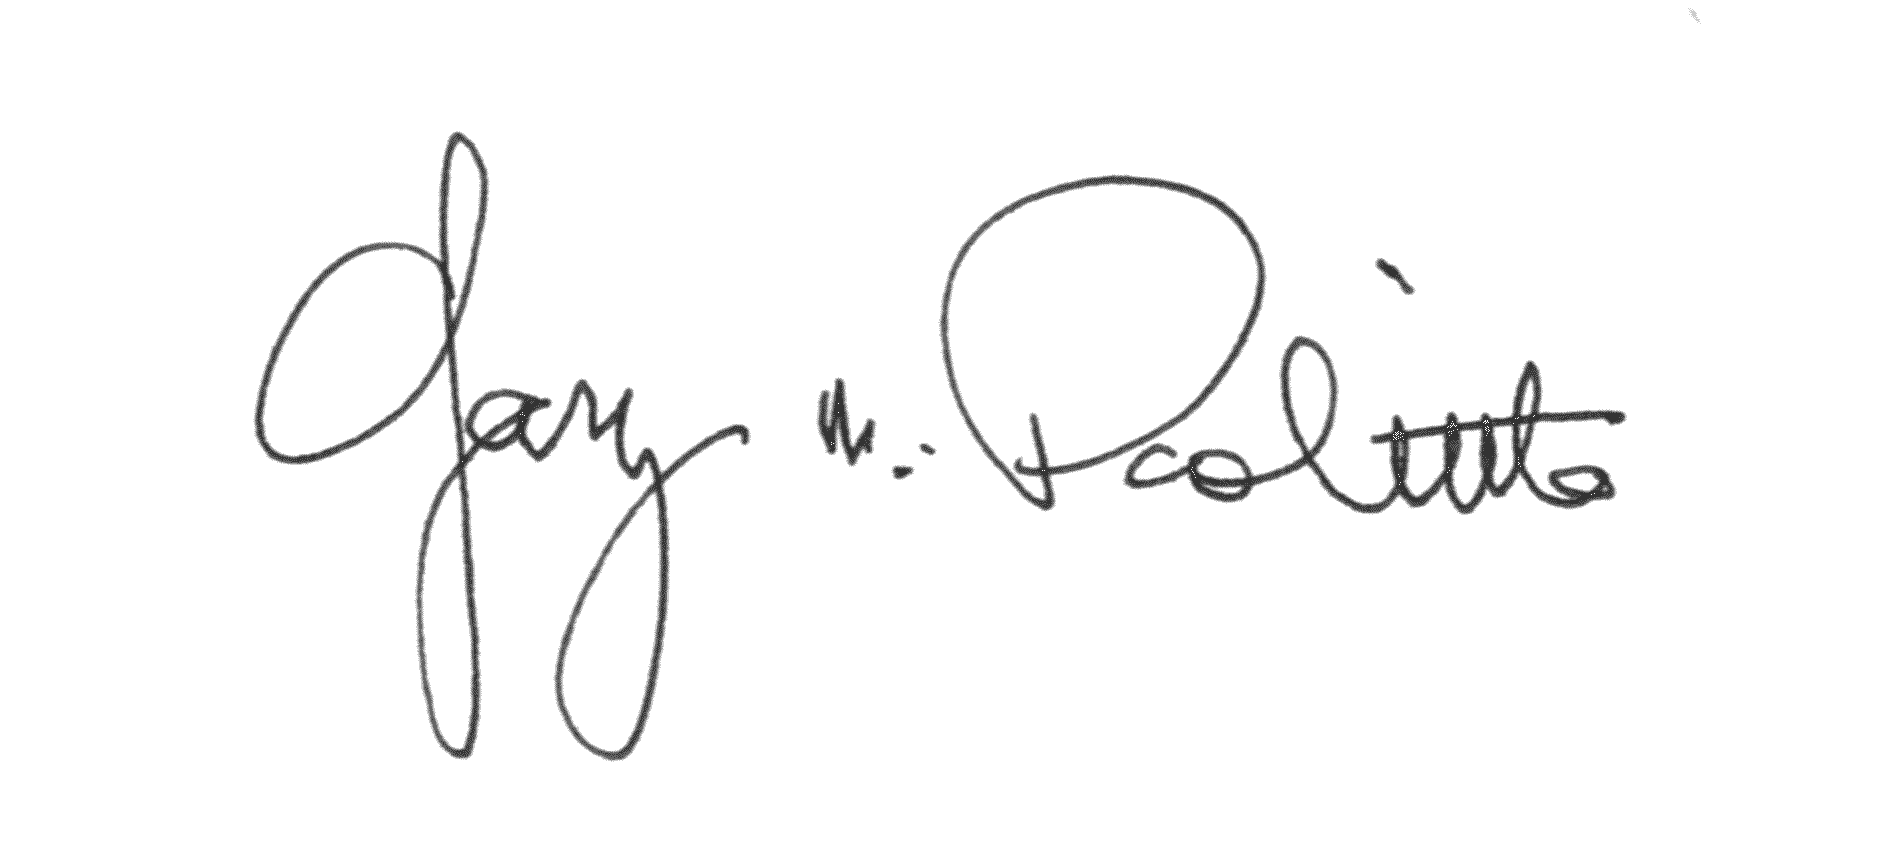 Gary M. Politto